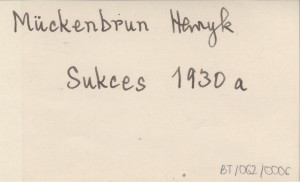 Mückenbrun Henryk
Sukces 1930 a
BT/062/0006